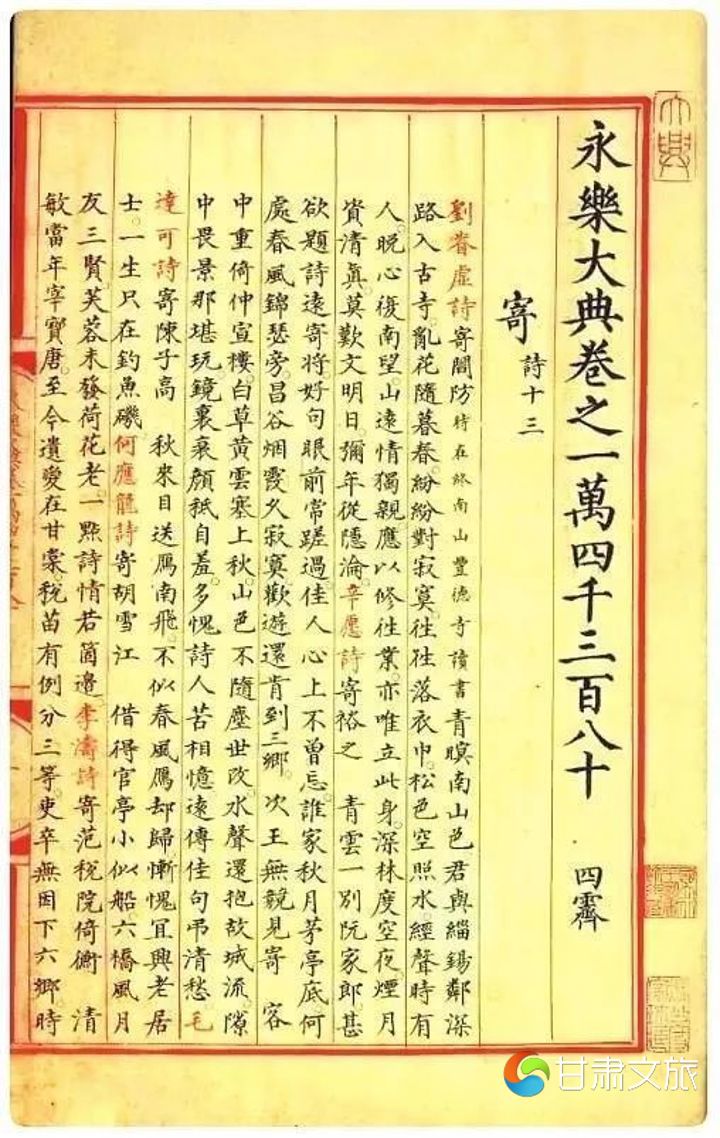 永樂大典卷之一萬四千三百八十 四霽
寄 詩十三
劉眘虛詩寄閻防時在終南山豐德寺讀書青暝南山色君與緇錫鄰深
路入古寺亂花隨暮春紛紛對寂寞往往落衣巾松色空照水經聲時有
人晚心復南望山遠情獨親應以修往業亦唯立此身深林度空夜煙月
資清真莫歎文明日彌年從隱淪辛愿詩寄裕之 青雲一別阮家郎甚
欲題詩遠寄將好句眼前常蹉過佳人心上不曾忘誰家秋月茅亭底何
處春風錦瑟旁昌谷烟霞久寂寞歡遊還肯到三鄉 次王無競見寄 客
中重倚仲宣樓白草黃雲塞上秋山色不隨塵世改水聲還抱故城流隙
中畏景那堪玩鏡裏衰顏秪自羞多愧詩人苦相憶遠傳佳句弔清愁毛
達可詩寄陳子高 秋來目送鴈南飛不似春風鴈却歸慚愧宜興老居
士一生只在釣魚磯何應龍詩寄胡雪江 借得官亭小似船六橋風月
友三賢芙蓉未發荷花老一點詩情若箇邊李濤詩寄范稅院倚衡 清
敏當年宰寶唐至今遺愛在甘棠稅苗有例分三等吏卒無因下六鄉時
大典
甘肃文旅